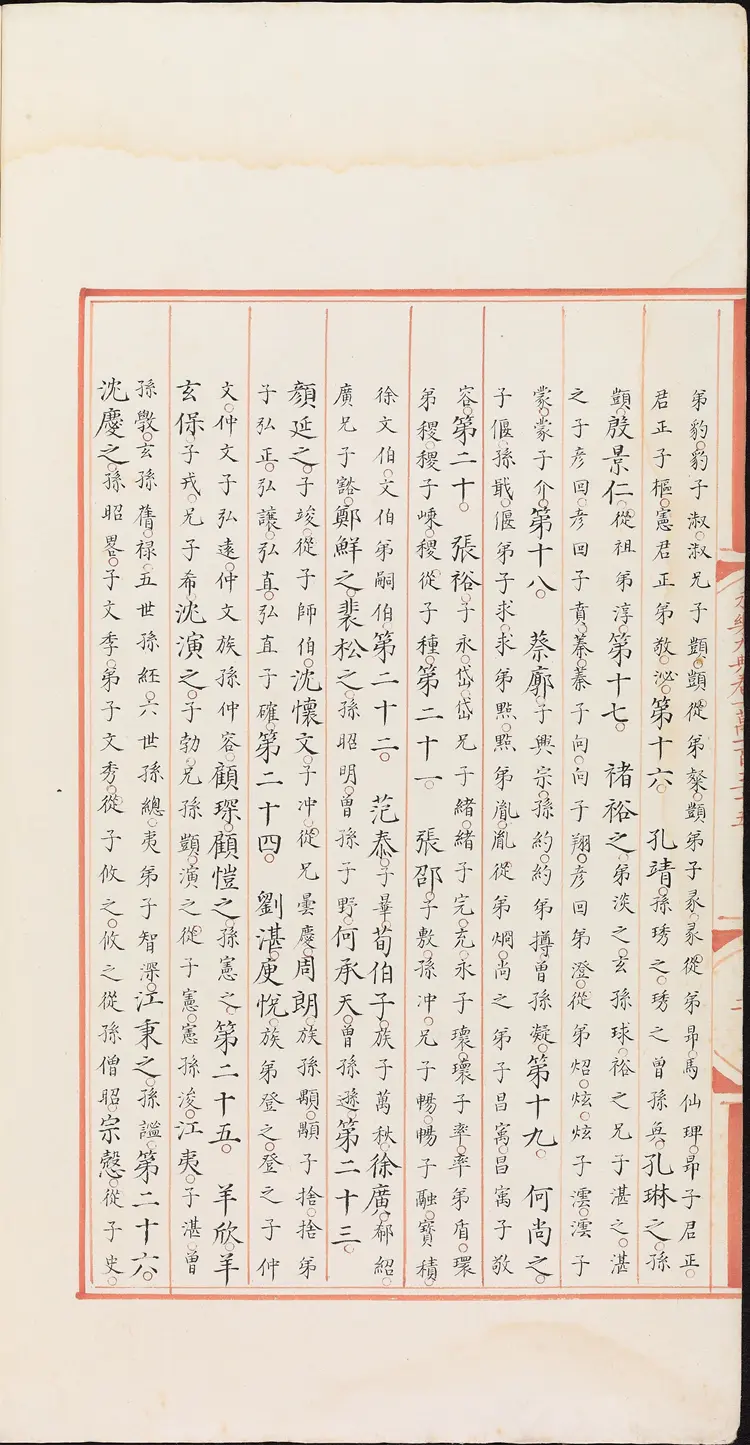 弟豹豹子淑淑兄子顗顗從弟粲顗弟子彖彖從弟昂馬仙琕昂子君正
君正子樞憲君正弟敬泌第十六 孔靖孫琇之琇之曾孫奐孔琳之孫
顗殷景仁從祖弟淳第十七 褚裕之弟淡之玄孫球裕之兄子湛之湛
之子彥回彥回子賁蓁蓁子向向子翔彥回弟澄從弟炤炫炫子澐澐子
蒙蒙子介第十八 蔡廓子興宗孫約約弟撙曾孫凝第十九 何尚之
子偃孫戢偃弟子求求弟點點弟胤胤從弟炯尚之弟子昌㝢昌㝢子敬
容第二十 張裕子永岱岱兄子緒緒子完充永子瓌瓌子率率弟盾環
弟稷稷子嵊稷從子種第二十一 張邵子敷孫冲兄子暢暢子融寶積
徐文伯文伯弟嗣伯第二十二 范泰子曄荀伯子族子萬秋徐廣郗紹
廣兄子豁鄭鮮之裴松之孫昭明曾孫子野何承天曾孫遜第二十三
顏延之子竣從子師伯沈懷文子冲從兄曇慶周朗族孫顒顒子捨捨弟
子弘正弘讓弘直弘直子確第二十四 劉湛庾悅族弟登之登之子仲
文仲文子弘遠仲文族孫仲容顧琛顧愷之孫憲之第二十五 羊欣羊
玄保子戎兄子希沈演之子勃兄孫顗演之從子憲憲孫浚江夷子湛曾
孫斅玄孫蒨祿五世孫紑六世孫總夷弟子智深江秉之孫謐第二十六
沈慶之孫昭畧子文季弟子文秀從子攸之攸之從孫僧昭宗慤從子史